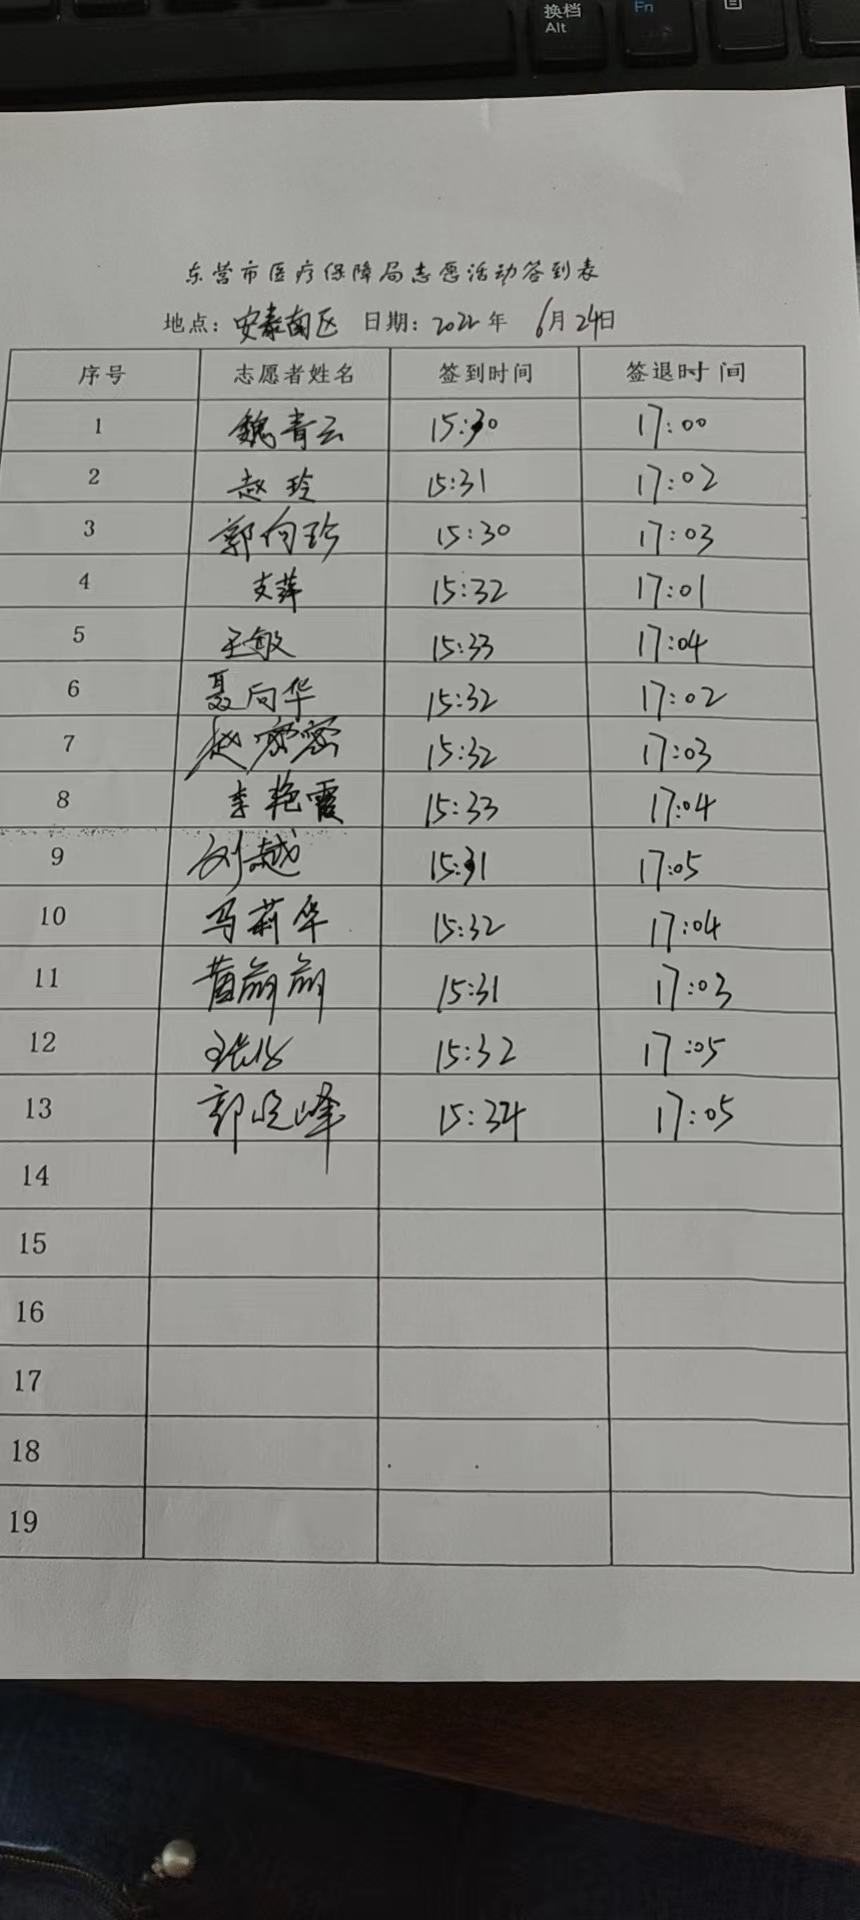 换档
Alt
Fn
东营市医疗保障局志愿活动签到表
地点：安泰南区 日期：2022年 6月24日
序号 志愿者姓名 签到时间 签退时间
1 魏青云 15:30 17:00
2 赵玲 15:31 17:02
3 郭向珍 15:30 17:03
4 支萍 15:32 17:01
5 王敏 15:33 17:04
6 聂向华 15:32 17:02
7 赵密密 15:32 17:03
8 李艳霞 15:33 17:04
9 刘越 15:31 17:05
10 马莉华 15:32 17:04
11 黄萌萌 15:31 17:03
12 15:32 17:05
13 郭晓峰 15:34 17:05
14
15
16
17
18
19